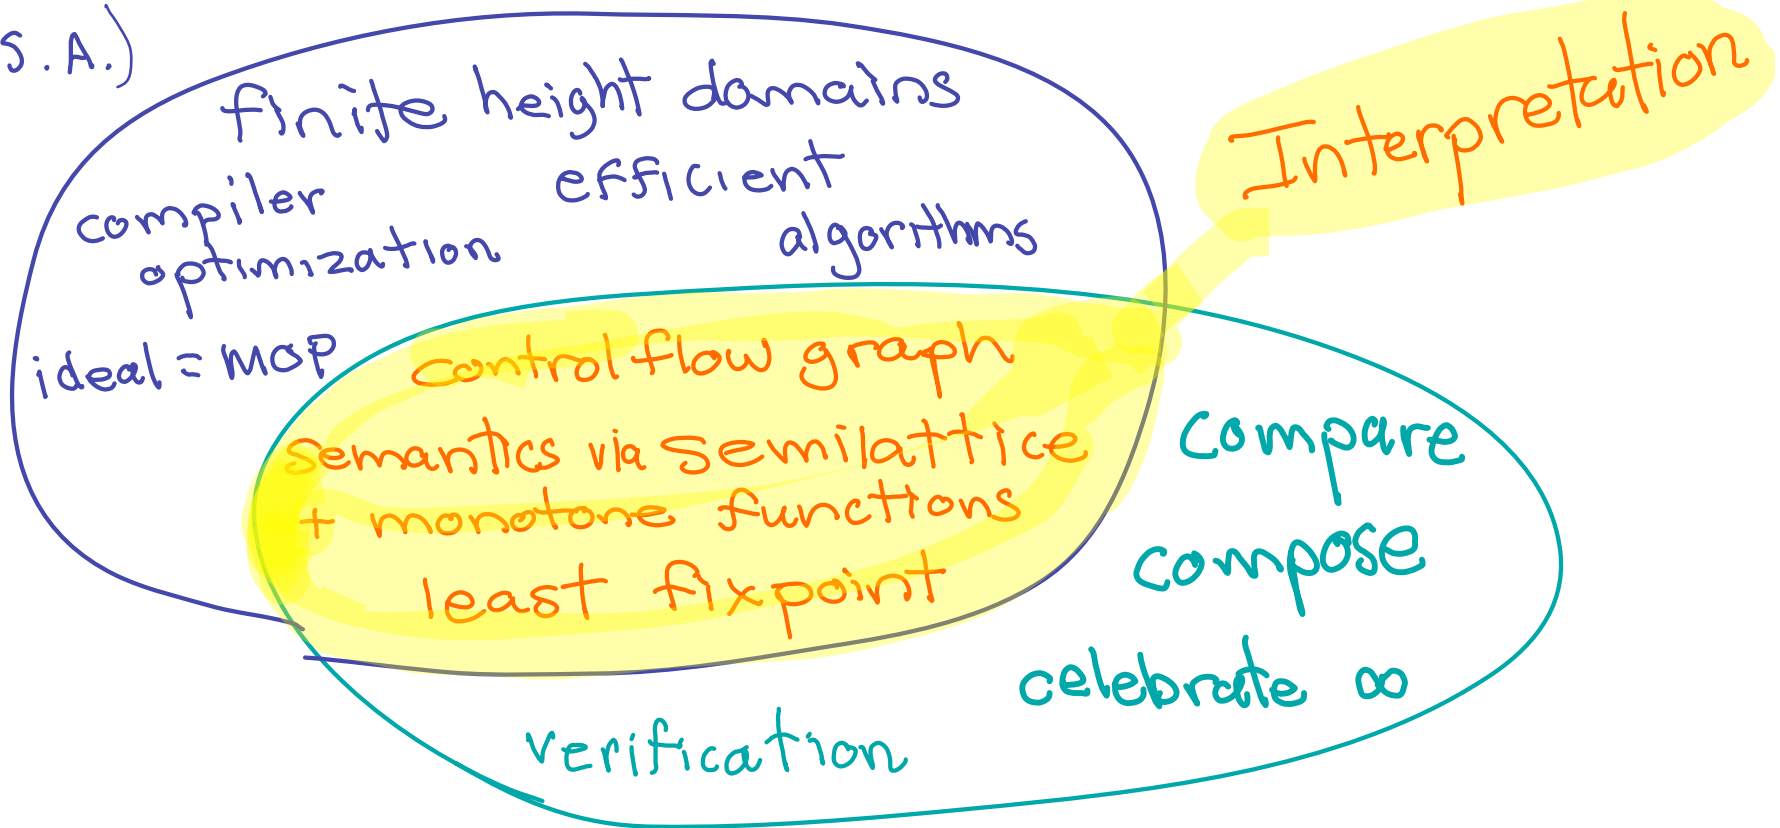 S.A.)
Interpretation
finite height domains
compiler
optimization
efficient
algorithms
ideal = MOP
control flow graph
semantics via semilattice
+ monotone functions
least fixpoint
compare
compose
celebrate ∞
verification